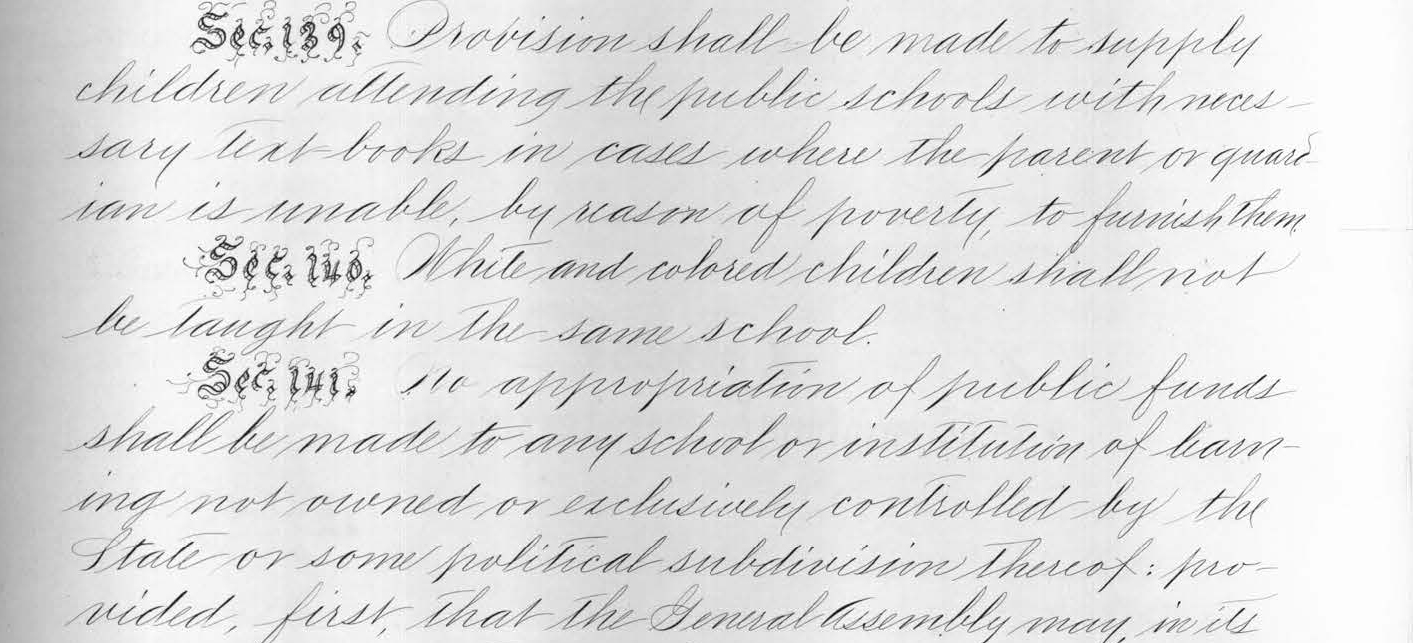 Sec. 139. Provision shall be made to supply
children attending the public schools with neces-
sary text-books in cases where the parent or guard-
ian is unable, by reason of poverty, to furnish them
Sec. 140. White and colored children shall not
be taught in the same school.
Sec. 141. No appropriation of public funds
shall be made to any school or institution of learn-
ing not owned or exclusively controlled by the
State or some political subdivision thereof: pro-
vided, first, that the General Assembly may, in its